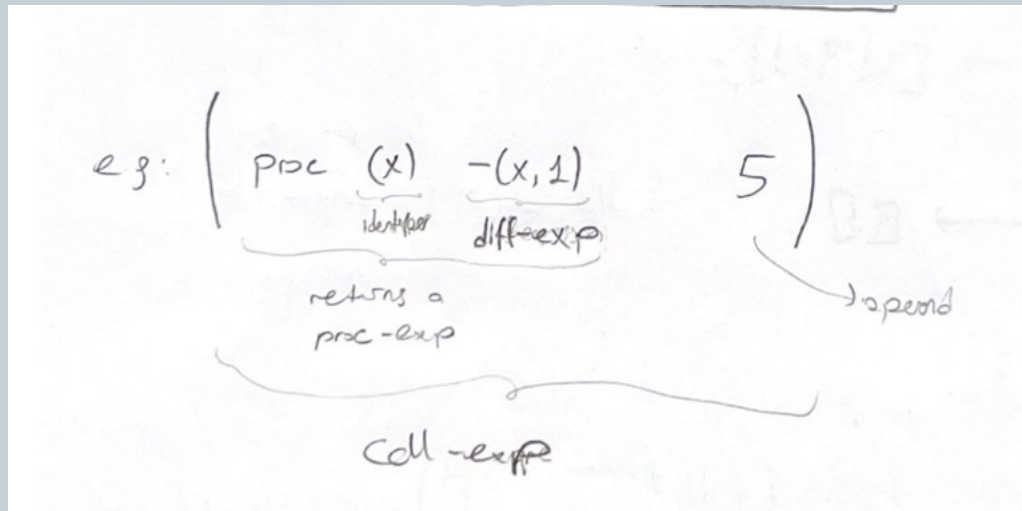 eg: ( proc (x) -(x, 1) 5 )
identifier diff-exp
returns a
proc-exp
operand
call-exp